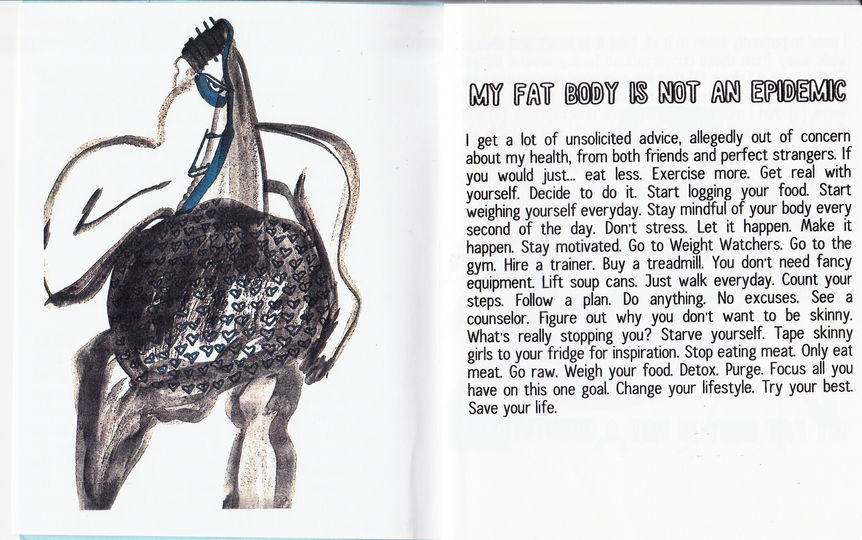 MY FAT BODY IS NOT AN EPIDEMIC
I get a lot of unsolicited advice, allegedly out of concern
about my health, from both friends and perfect strangers. If
you would just... eat less. Exercise more. Get real with
yourself. Decide to do it. Start logging your food. Start
weighing yourself everyday. Stay mindful of your body every
second of the day. Don't stress. Let it happen. Make it
happen. Stay motivated. Go to Weight Watchers. Go to the
gym. Hire a trainer. Buy a treadmill. You don't need fancy
equipment. Lift soup cans. Just walk everyday. Count your
steps. Follow a plan. Do anything. No excuses. See a
counselor. Figure out why you don't want to be skinny.
What's really stopping you? Starve yourself. Tape skinny
girls to your fridge for inspiration. Stop eating meat. Only eat
meat. Go raw. Weigh your food. Detox. Purge. Focus all you
have on this one goal. Change your lifestyle. Try your best.
Save your life.